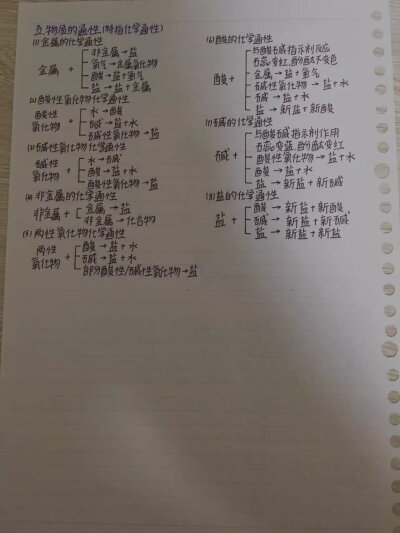 五.物质的通性(特指化学通性)
(1)金属的化学通性
金属 +
非金属→盐
氧气→金属氧化物
酸→盐+氢气
盐→盐+金属
(2)酸性氧化物化学通性
酸性
氧化物 +
水→酸
碱→盐+水
碱性氧化物→盐
(3)碱性氧化物化学通性
碱性
氧化物 +
水→碱
酸→盐+水
酸性氧化物→盐
(4)非金属的化学通性
非金属 +
金属→盐
非金属→化合物
(5)两性氧化物化学通性
两性
氧化物 +
酸→盐+水
碱→盐+水
部分酸性/碱性氧化物→盐
(6)酸的化学通性
酸 +
与酸碱指示剂反应
石蕊变红,酚酞不变色
金属→盐+氢气
碱性氧化物→盐+水
碱→盐+水
盐→新盐+新酸
(7)碱的化学通性
碱 +
与酸碱指示剂作用
石蕊变蓝,酚酞变红
酸性氧化物→盐+水
酸→盐+水
盐→新盐+新碱
(8)盐的化学通性
盐 +
酸→新盐+新酸
碱→新盐+新碱
盐→新盐+新盐